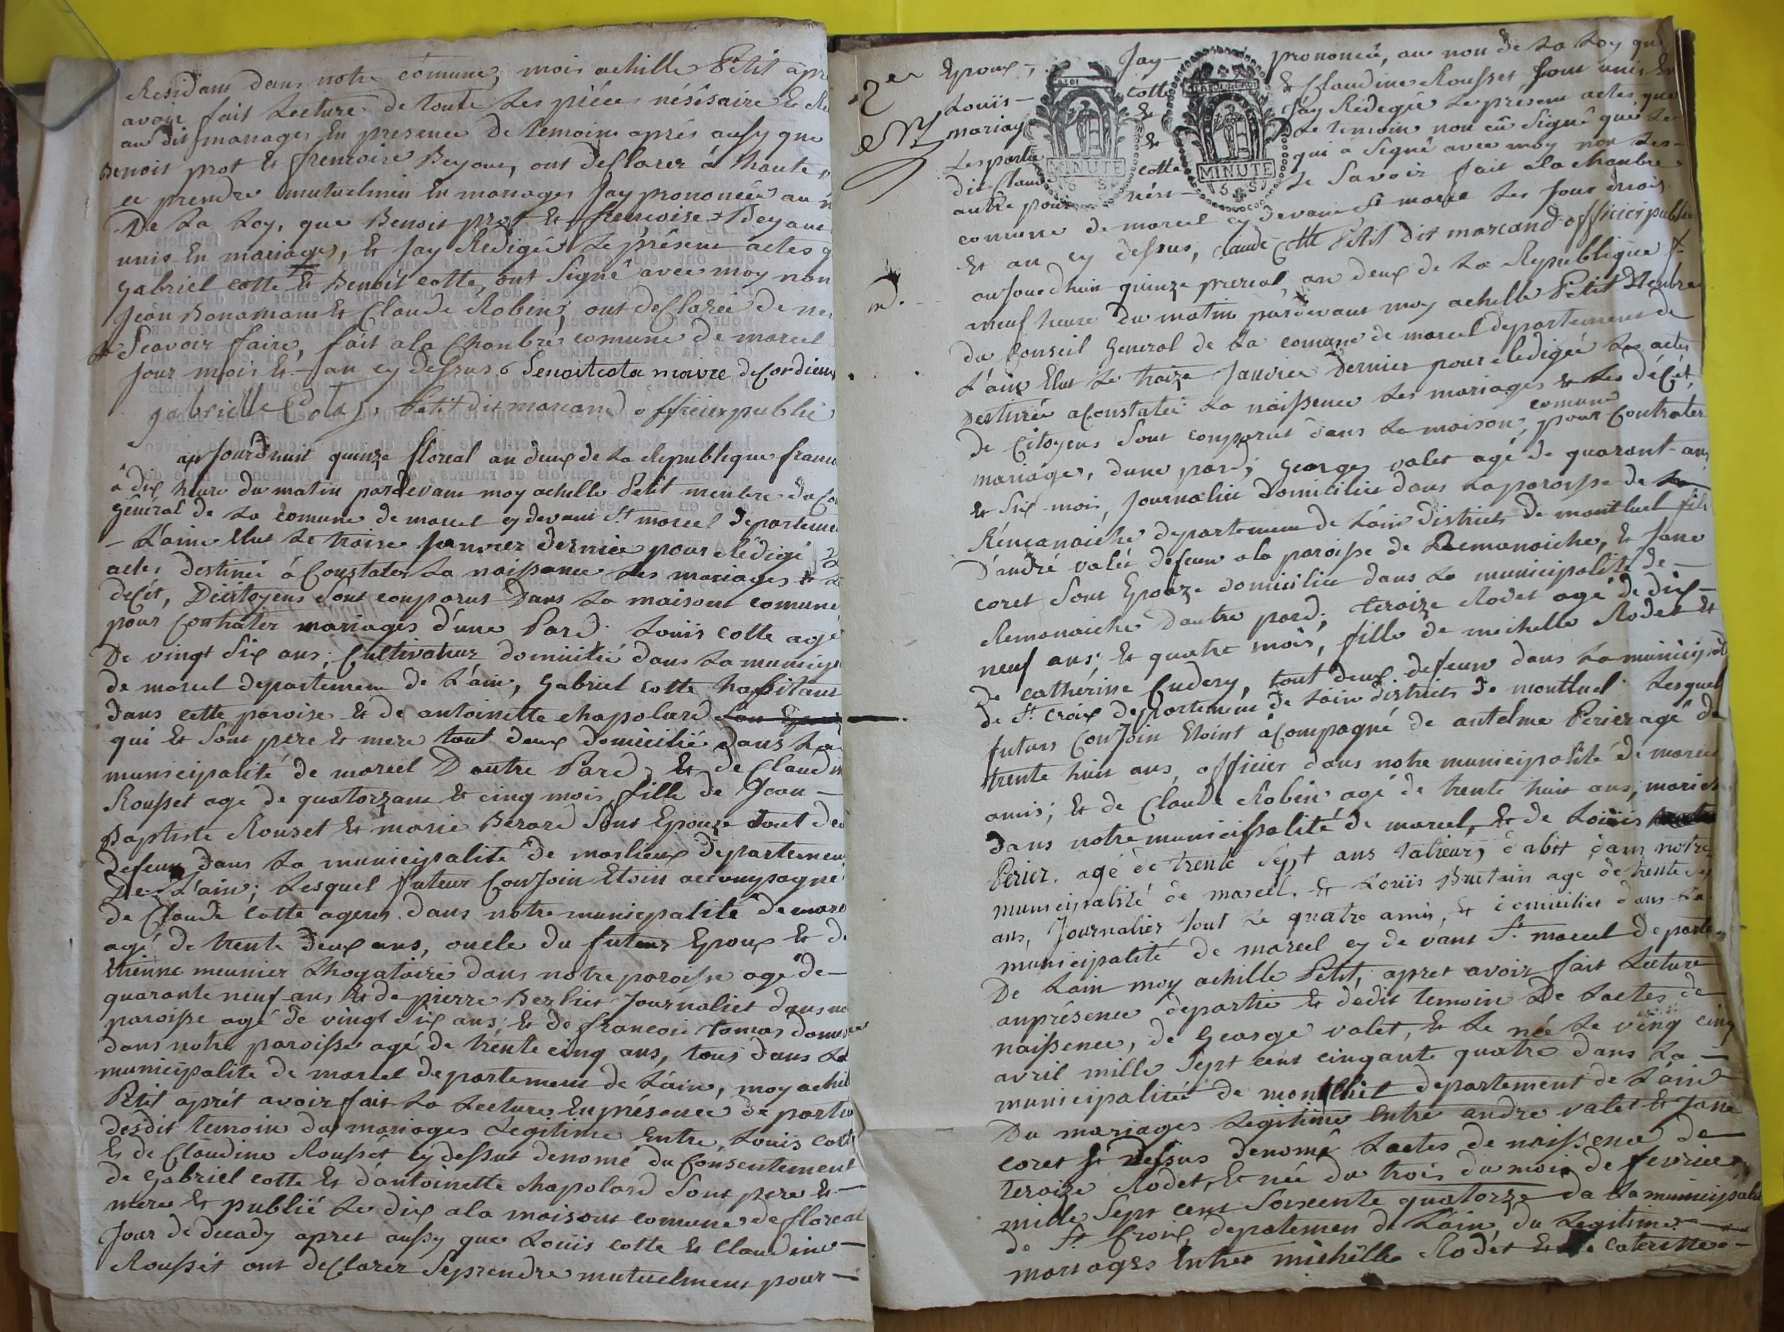 Residant dans notre comune, moi achille Petit apre
avoir fait Lecture de toute Les pièces nésésaire Et Re
au dit mariages En presence De temoins aprés aussy que
Benoit prot Et francoise Beyoue, ont desclarer à haute
ce prendre mutuelmen En mariages Jay prononcée au n
De La Loy, que Benoit prot Et francoise Beyoue
unis En mariages, Et Jay Redigée Le présent actes q
gabriel cotte Et Benoît cotte, ont Signé avec moy non
Jean Bonamam Et Claude Robin, ont desClarée de ne
Scavoir faire, fait ala Chanbre comune de marcel
Jour mois Et an cy dessus Benoit cota maire de Cordieux
gabrielle Cotaz Petit dit marcand officier public
aujourdhuit quinze floreal an deux de La Republique franc
à dix heure du matin pardevant moy achille Petit menbre du Co
général de La comune de marcel cy devant St marcel departeme
L'ain Elut Le traize Janvier dernier pour Rédigé
actes destiné à Constater La naissance Les mariages Et Le
decét, Decitoyens Sont conparut Dans La maison comune
pour Contrater mariages d'une Pard. Louis cotte agé
De vingt Six ans, Cultivateur domicilié dans La municip
de marcel departement de L'ain, Gabriel cotte habitant
dans cette paroise Et de antoinette chapolard
qui Et Sont pere Et mere tout deux domicilié dans La
municipalité de marcel D'autre Pard, Et de Claudin
Rousset age de quatorzans Et cinq mois fille de Jean
Baptiste Rouset Et marie Berard Sont Epouze tout deu
defeun dans La municipalité de marlieux departement
De L'ain; Lesquel futeur ConJoin Etoin accompagné
de Claude cotte agent dans notre municipalité de marc
agé de trente deux ans, oncle du futeur Epoux Et de
Etienne meunier dans notre paroisse agé de
quarante neuf ans Et de pierre Berlier Journalier dans no
paroisse agé de vingt dix ans, Et de francois tomas dom
dans notre paroisse agé de trente cinq ans, tous dans La
municipalité de marcel departement de L'ain, moy achil
Petit aprét avoir fait La Lecture En présence de partie
desdit temoin du mariages Legitime Entre Louis cott
Et de Claudine Rousset cy dessut denomé du Consentement
de Gabriel cotte Et d'antoinette chapolard Sont pere Et
mere Et publié Le dix ala maison comune de floreal
Jour de decady apret aussy que Louis cotte Et Claudine
Rousset ont desClarer Seprendre mutuelment pour
Epoux, Jay prononcée, au nom de La Loy que
Louis cotte Et Claudine Rousset Sont unis En
mariage Et Jay Redegée Le présent actes que
Les partie Et Le temoin non cû Signé que Le
dit Claud cotte qui a Signé avec moy non Les
autre pour nén Le Savoir fait ala chanbre
comune de marcel cy devant St marcel Les Jour mois
Et an cy dessus, Claude Cotte Petit dit marcand officier public
aujourdhuit quinze prereal an deux de La Republique fr
neuf heure du matin pardevant moy achille Petit Menbre
du Conseil General de La comune de marcel departement de
L'ain Elut Le traize Janvier Dernier pour Redigée Les actes
Destinée aConstater La naissence Les mariages Et Les décét,
de Citoyens Sont conparut dans La maison comune pour Contrater
mariage, dune pard, George valet agé de quarant ans
Et Six mois, Journalié domicilié dans La paroisse de
Rémanaiche departement de L'ain districts de montluel fils
D'andré valet defeun ala paroisse de Remanaiche, Et Jane
coret Sont Epouze domicilié dans La municipalité de
Remanaiche Dautre pard, teroize Rodet agé de dix
neuf ans, Et quatre mois, fille de michelle Rodet Et
de catherine Cudery, tout deux defeun dans La municipali
de St croix departement de Lain districts de montluel Lesquel
futurs ConJoin Etoint acompagné de antelme Perier agé de
trente huit ans, officier dans notre municipalité de marcel
amis; Et de Claude Robin agé de trente huit ans, marie
dans notre municipalité de marcel, Et de Louis
Perier, agé de trente Sept ans habit dans notre
municipalité de marcel, Et Louis Bretain agé de trente
ans, Journalier tout Le quatre amis, Et domicilié dans La
municipalité de marcel cy devant St marcel departe
De Lain moy achille Petit, apret avoir fait Lecture
anprésence departie Et dedit temoin De Lactes de
naissence, de George valet, Et Le née Le vingt cinq
avril mille Sept cent cinqante quatre dans La
municipalité de departement de L'ain
Du mariages Legitime Entre andre valet Et Jane
coret Si Dessus denomé Lactes de naissence de
teroize Rodet, Et née du trois du mois de fevrier
mille Sept cent Soixente quatorze da La municipali
de St Croix, departemen de L'ain du Legitime
mariages Entre michelle Rodet Et de Caterine
2e
MINUTE
MINUTE